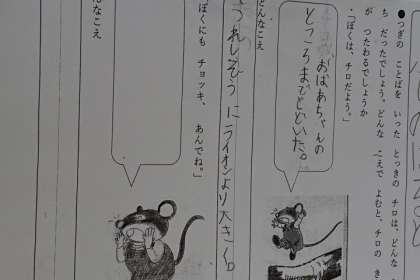 ●つぎの ことばを いった とっきの チロは、どんな
ちだったでしょう。どんな こえで よむと、チロの き
が つたわるでしょうか
・「ぼくは、チロだよう。」
おばあちゃんの
ところまでとどいた。
どんなこえ
うれしそう にライオンより大きく。
ぼくにも チョッキ、 あんでね。」
んなこえ